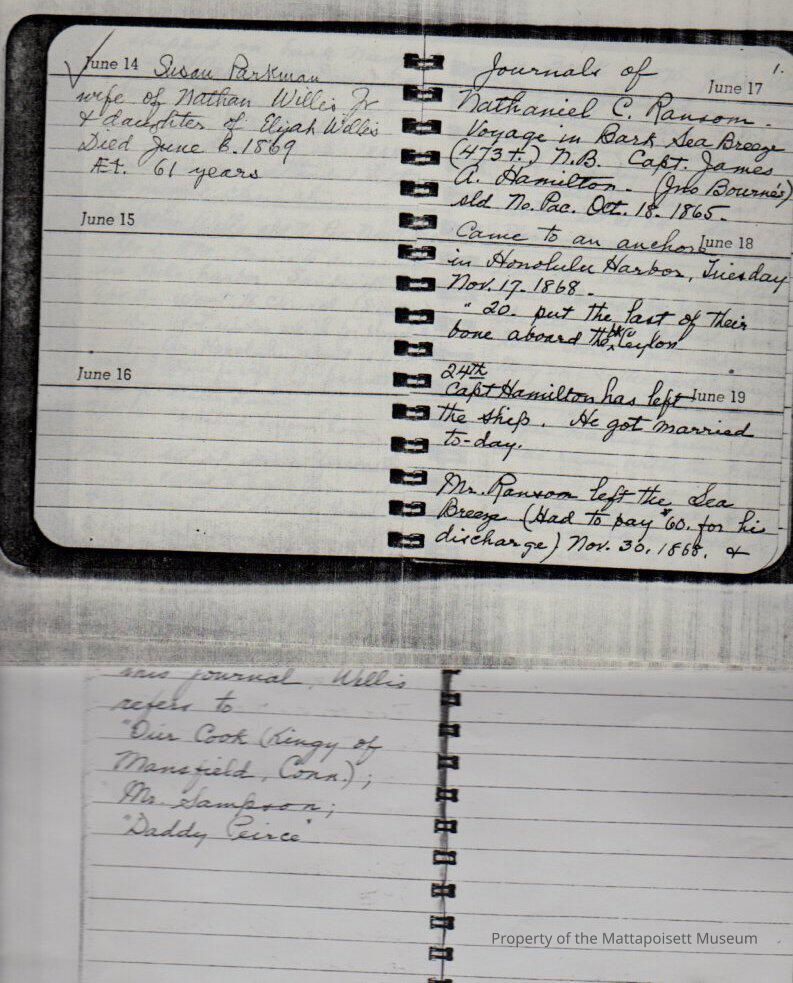 June 14 Susan Parkman
wife of Nathan Willis Jr
& daughter of Elijah Willis
Died June 6. 1869
Æt. 61 years
June 15
June 16
1.
Journals of
June 17
Nathaniel C. Ransom.
Voyage in Bark Sea Breeze
(473 t.) N.B. Capt. James
A. Hamilton - (Jno Bourne's)
sld No. Pac. Oct. 18. 1865.
Came to an anchor June 18
in Honolulu Harbor, Tuesday
Nov. 17. 1868.
" 20. put the last of their
bone aboard the bk Ceylon
24th
Capt Hamilton has left June 19
the ship. He got married
to-day.
Mr. Ransom left the Sea
Breeze (Had to pay $60. for his
discharge) Nov. 30. 1868. &
this journal, Willis
refers to
"Our Cook (Kingy of
Mansfield, Conn.);
Mr. Sampson;
"Daddy Peirce"
Property of the Mattapoisett Museum